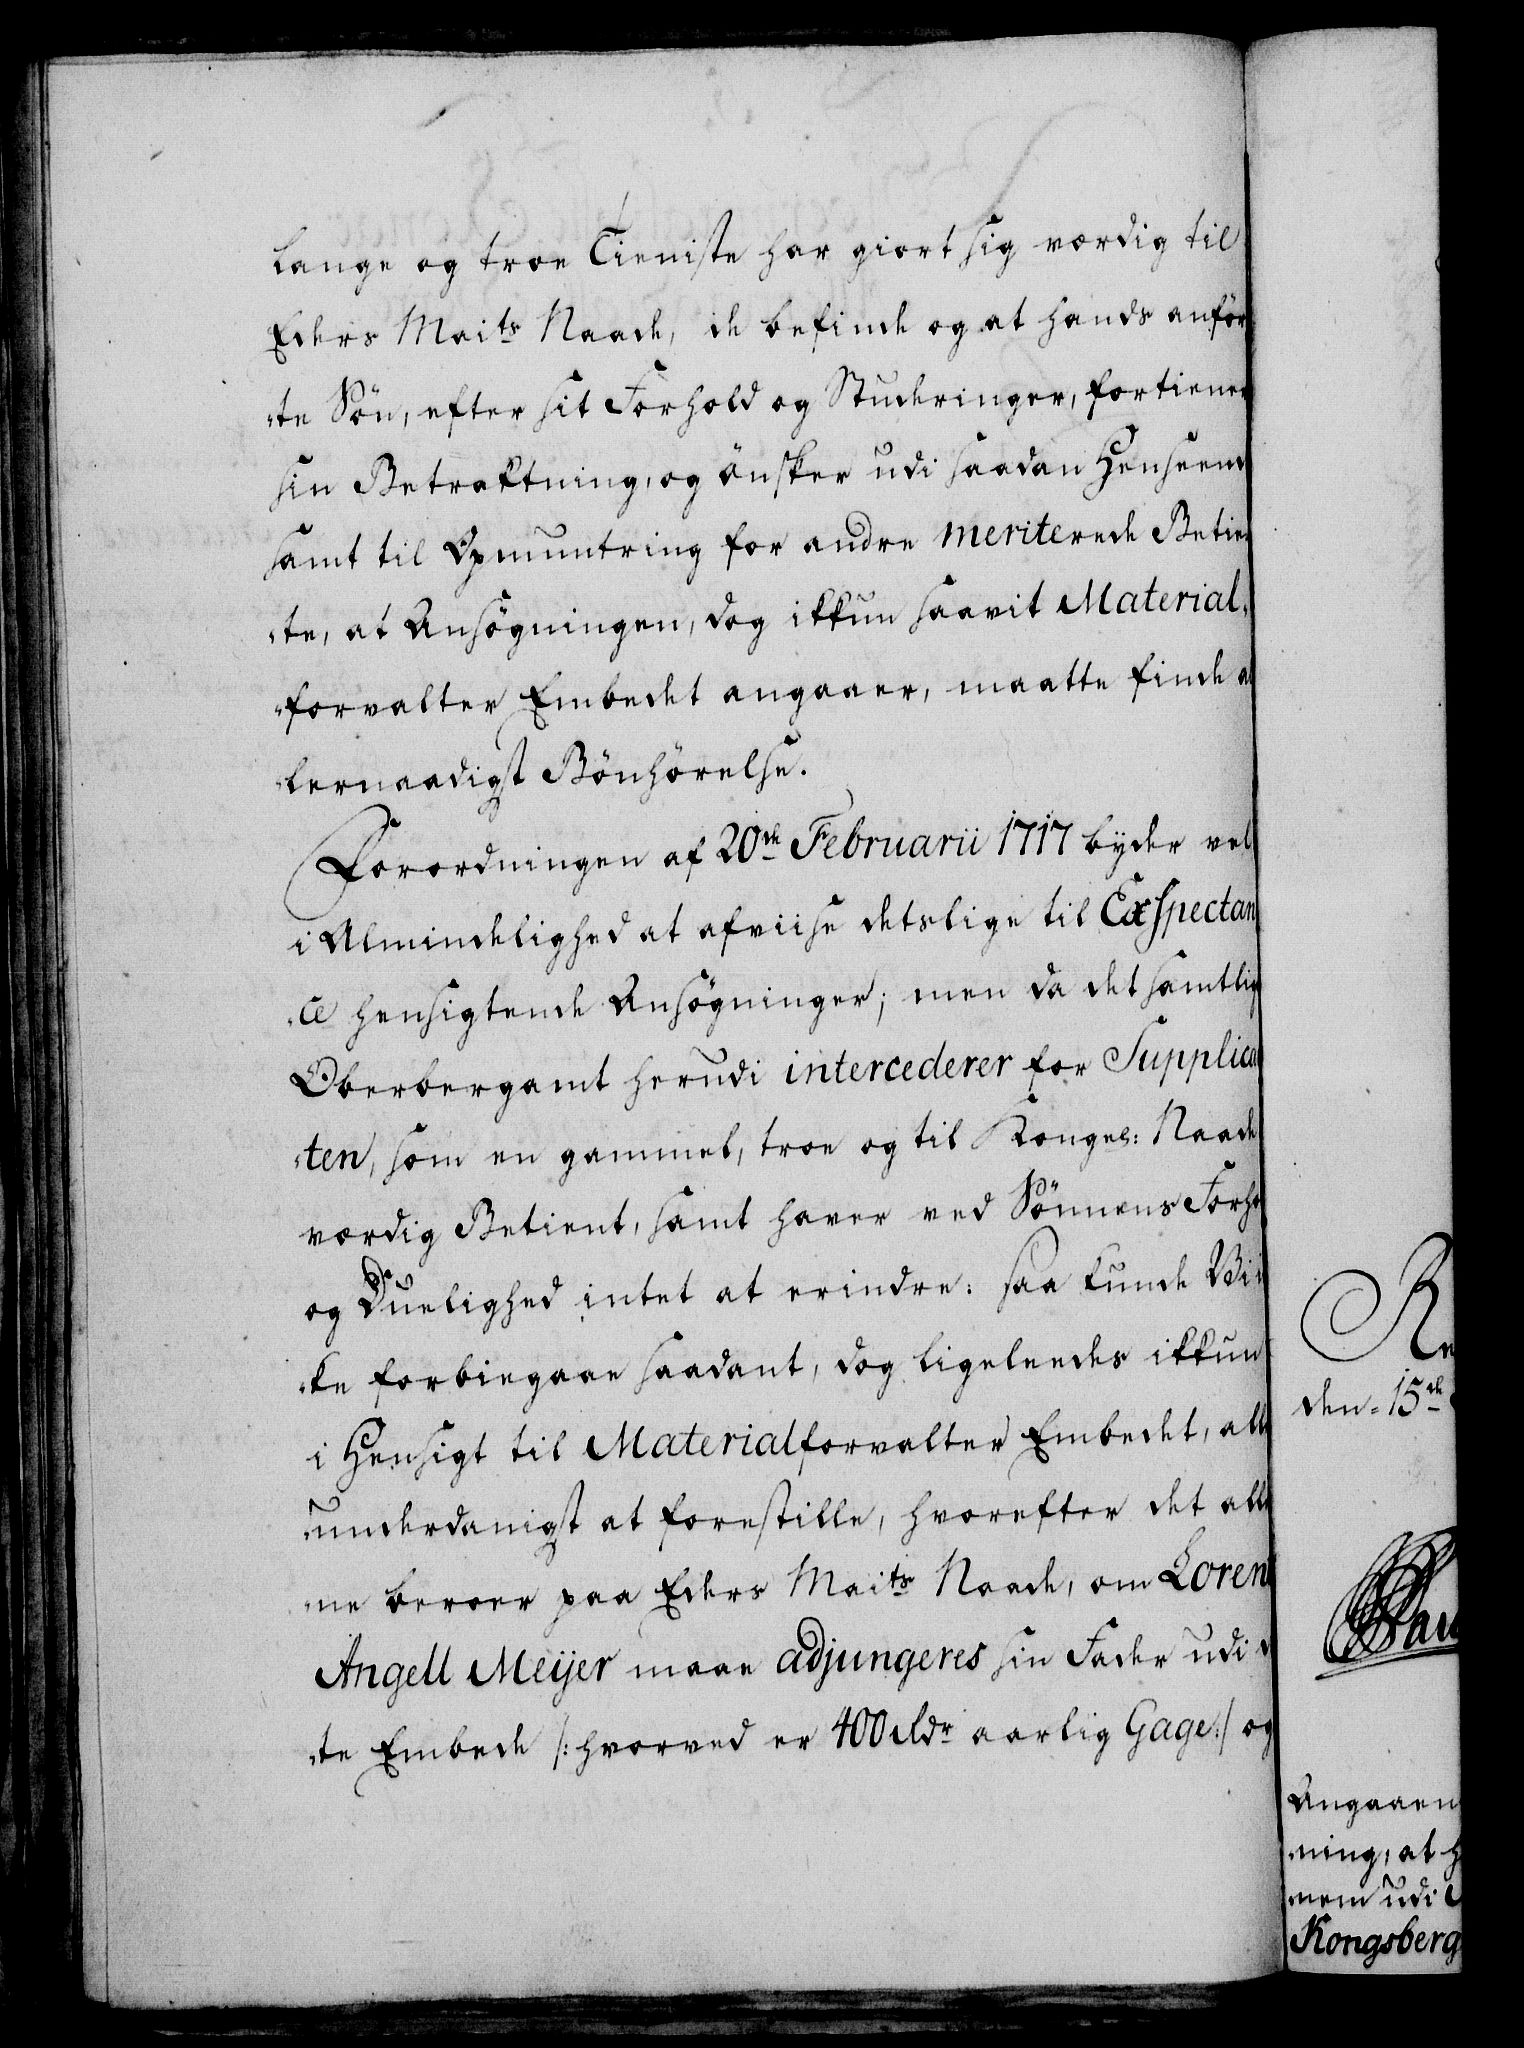 lange og troe Tieniste har giort sig værdig til
Eders Maits Naade, de befinde og at hands anför-
-te Sön, efter sit Forhold og Studeringer, fortiener
sin Betraktning, og ønsker udi saadan Henseende
samt til Opmuntring for andre meriterede Betien
-te, at Ansögningen, dog ikkun saavit Material-
-forvalter Embedet angaaer, maatte finde al
-lernaadigst Bönhörelse.
Forordningen af 20de Februarii 1717 byder vel
i Almindelighed at afviise detslige til Exspectan
-ce hensigtende Ansögninger; men da det samtlige
Oberbergamt herudi intercederer for Supplican
-ten, som en gammel, troe og til Kongel: Naade
værdig Betient, samt haver ved Sönnens Forho
og Duelighed intet at erindre: saa kunde Vi i
-ke forbiegaae saadant, dog ligeleedes ikkun
i Hensigt til Materialforvalter Embedet, alle
-underdanigst at forestille, hvorefter det alle
-ne beroer paa Eders Maits Naade, om Lorent
Angell Meijer maae adjungeres sin Fader udi
-te Embede /: hvorved er 400 Rdr aarlig Gage :/ og
Re
den 15de
Angaaen
-ning, at h
-nem udi
Kongsberg